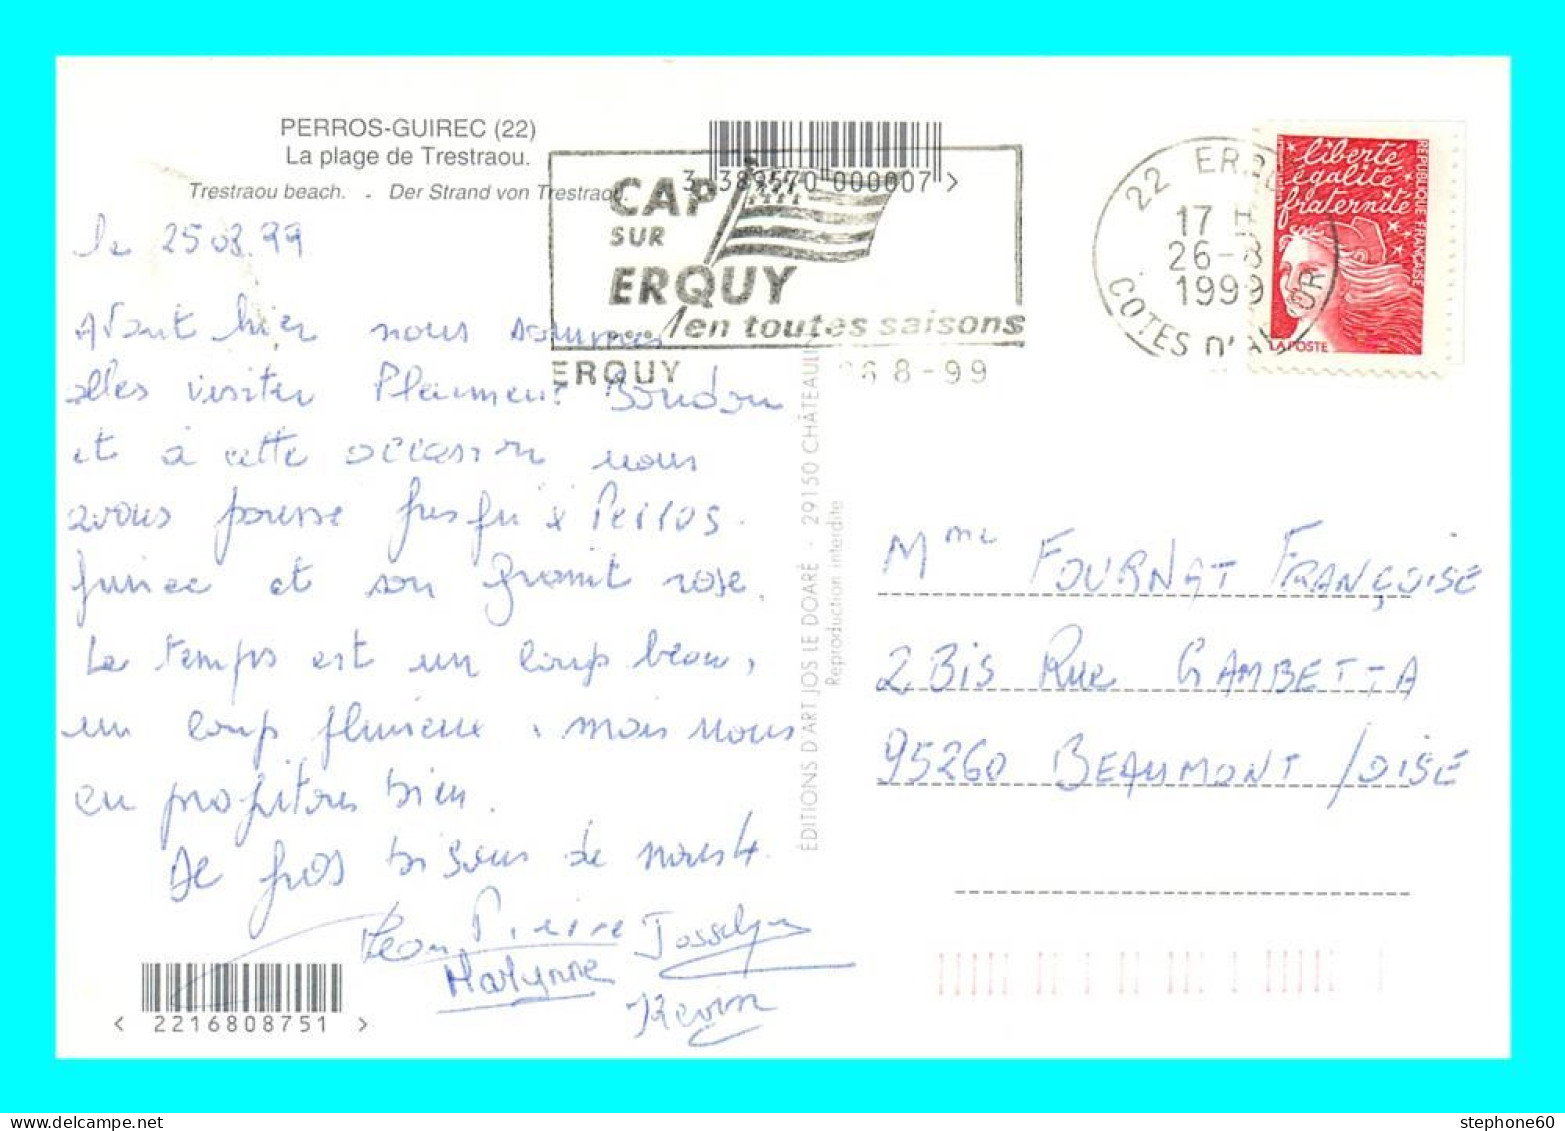 PERROS-GUIREC (22)
La plage de Trestraou.
Trestraou beach. - Der Strand von Trestraou.
3 389570 000007 >
CAP
SUR
ERQUY
...en toutes saisons
ERQUY 26 8-99
22 ERQUY
17 H
26-8
1999
COTES D'ARMOR
liberté
égalité
fraternité
REPUBLIQUE FRANÇAISE
LA POSTE
le 25 08.99
Avant hier nous sommes
allés visiter Pleumeur Boudou
et à cette occasion nous
avons pousse jusqu'à Perros.
Guirec et son granit rose.
Le temps est un coup beau,
un coup pluvieux, mais nous
en profitons bien.
De gros bisous de nous 4.
Jean Pierre Josselyne
Marlynne
Kevin
< 2216808751 >
ÉDITIONS D'ART JOS LE DOARÉ - 29150 CHÂTEAULIN
Reproduction interdite
Mme FOURNAT FRANÇOISE
2 BIS Rue GAMBETTA
95260 BEAUMONT /OISE
stephone60